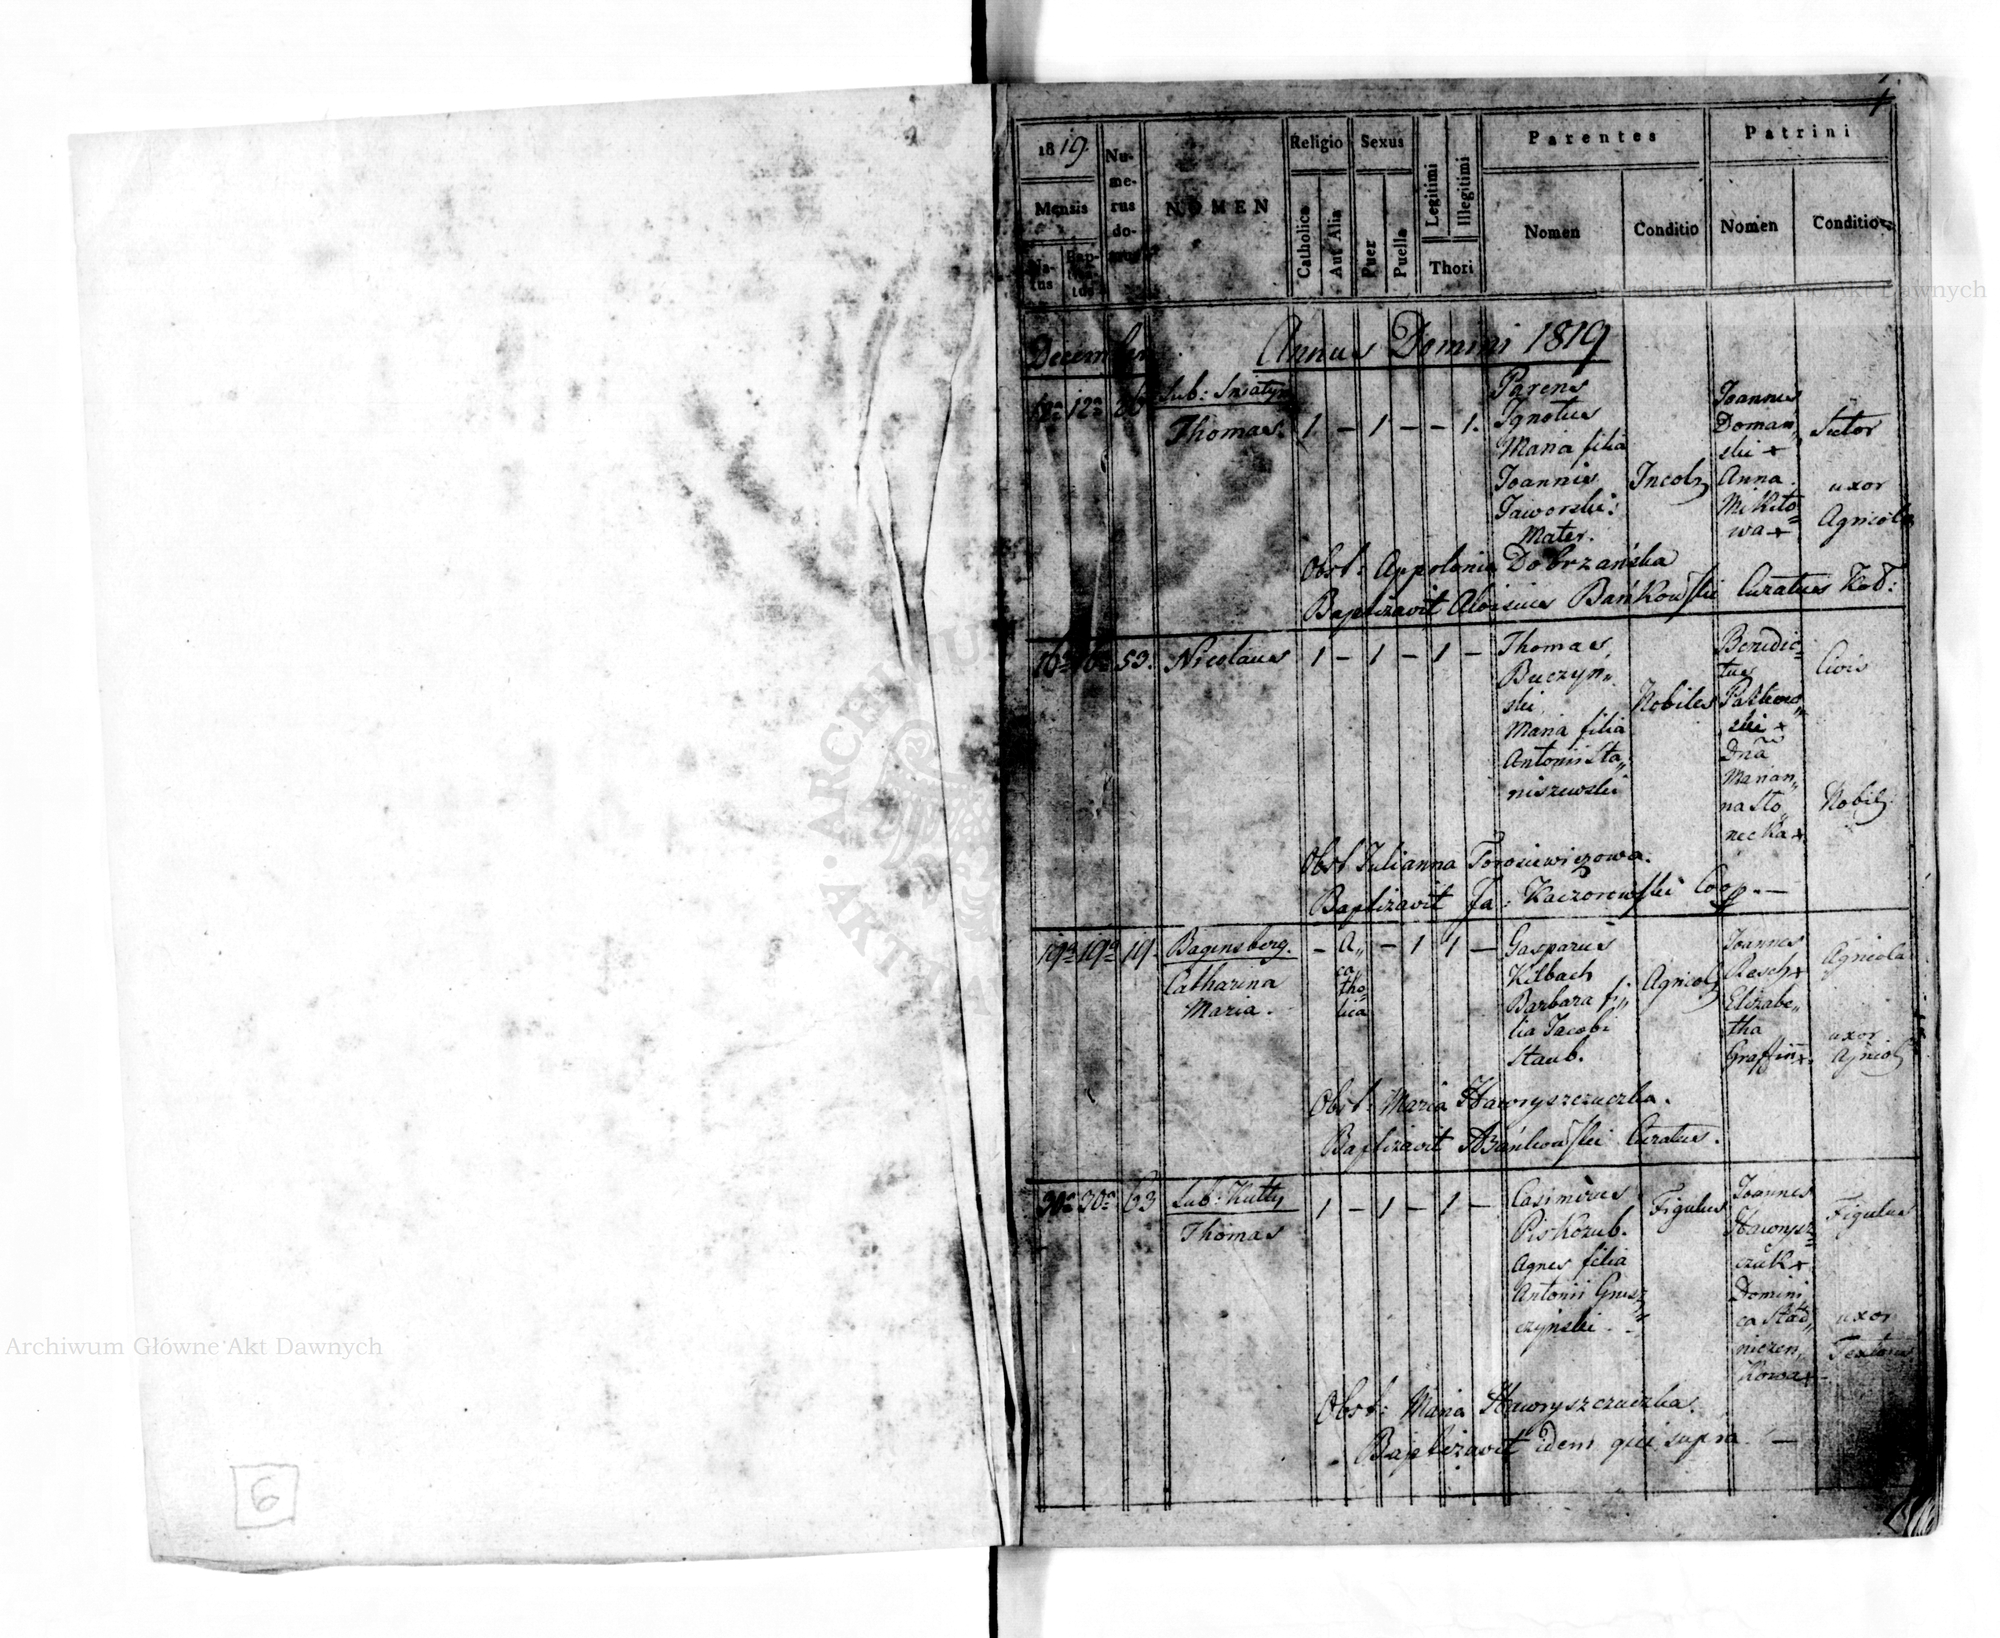 1819.
Mensis
Na-
tus
Bap-
tisa-
tus
Nu-
me-
rus
do-
mus
NOMEN
Religio
Catholica
Aut Alia
Sexus
Puer
Puella
Legitimi
Illegitimi
Thori
Parentes
Nomen
Conditio
Patrini
Nomen
Conditio
December
Annus Domini 1819
12a 12a
Sub: Sniatyn
Thomas.
1. – 1 – – 1.
Parens
Ignotus
Maria filia
Joannis
Jaworski:
Mater.
Incola
Joannes
Doman„
ski +
Anna
Mikito=
wa +
Sutor
uxor
Agricola
Obst: Appolonia Dobrzańska
Baptizavit Aloisius Bańkowski Curatus
16a 16a 53.
Nicolaus
1 – 1 – 1 –
Thomas
Buczyń„
ski
Maria filia
Antonii Sta„
niszewski
Nobiles
Benedic=
tus
ski +
Dna
Marian„
na Sto„
necka +
Civis
Nobil
Obst Julianna Torosiewiczowa.
Baptizavit Ja: Kaczorowski Coop. –
19a 19a 19.
Baginsberg.
Catharina
Maria.
– A„
ca„
tho=
lica
– 1 1 –
Gasparus
Kilbach
Barbara fi„
lia Jacobi
Staub.
Agricola
Joannes
Resch +
Elizabe„
tha
Graffin +.
Agricola
uxor
Agricol
Obst: Maria Hawryszczuczka.
Baptizavit ABańkowski Curatus.
30a 30a 63
Sub: Kutty
Thomas
1 – 1 – 1 –
Casimirus
Piskozub.
Agnes filia
Antonii Grusz„
czynski
Figulus
Joannes
Hawrysz=
czuk +
Domini
ca Stad„
niczen„
kowa +
Figulus
uxor
Textoris
Obst: Maria Hawryszczuczka.
Baptizavit idem qui supra –
6
Archiwum Główne Akt Dawnych
Archiwum Główne Akt Dawnych
ARCHIWUM
AKT